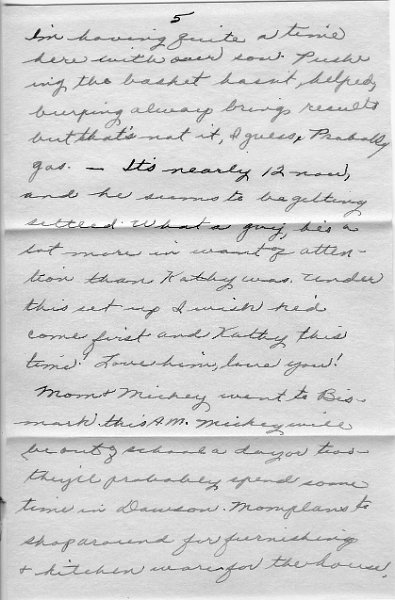 5
I'm having quite a time
here with over son. Push
ing the basket hasn't helped,
burping always brings results
but that's not it, I guess, Probably
gas. — It's nearly 12 now,
and he seems to be getting
settled. What a guy, he's a
lot more in want of atten-
tion than Kathy was. Under
this set up I wish he'd
come first and Kathy this
time! Love him, love you!
Mom & Mickey went to Bis-
mark this A.M. Mickey will
be out of school a day or two
they'll probably spend some
time in Dawson. Mom plans to
shop around for furnishing
& kitchen ware for the house.